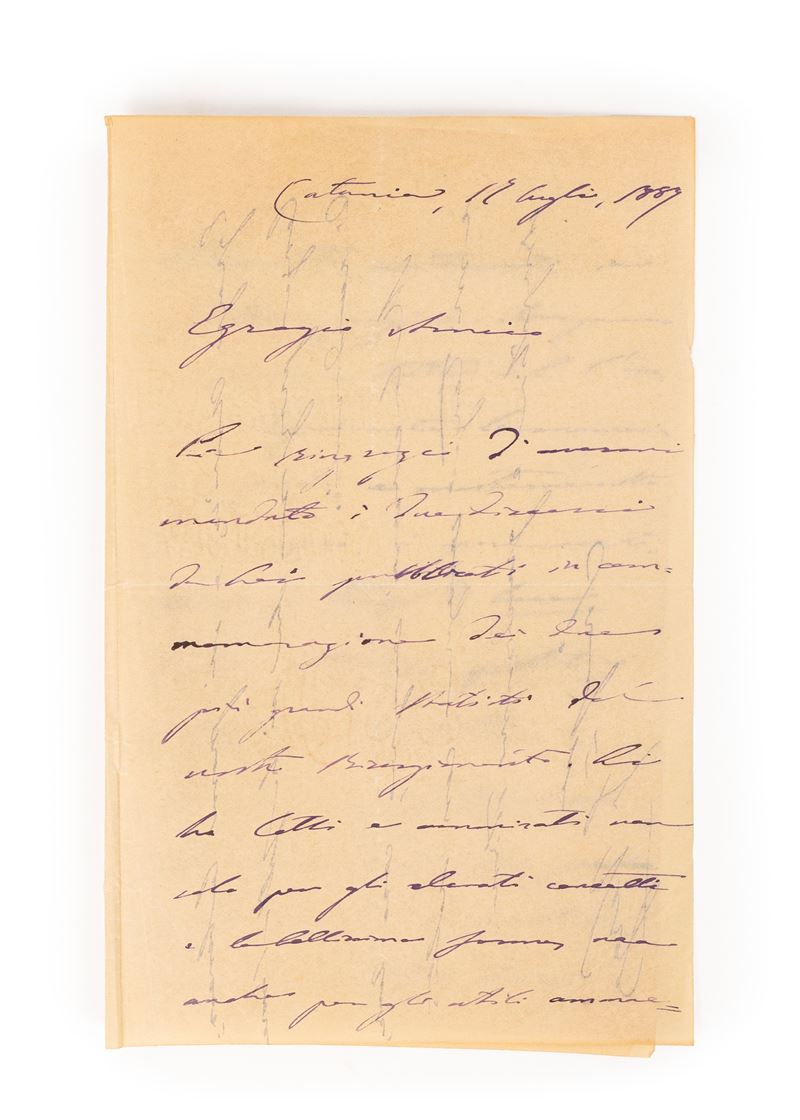 Catania, 12 luglio, 1889
Egregio Amico
La ringrazio d'avermi
mandato i due discorsi
da Lei pubblicati in com=
memorazione dei due
più grandi statisti del
nostro Risorgimento. Li
ho letti e ammirati non
solo per gli elevati concetti
e la bellissima forma, ma
anche per gli utili ammae=